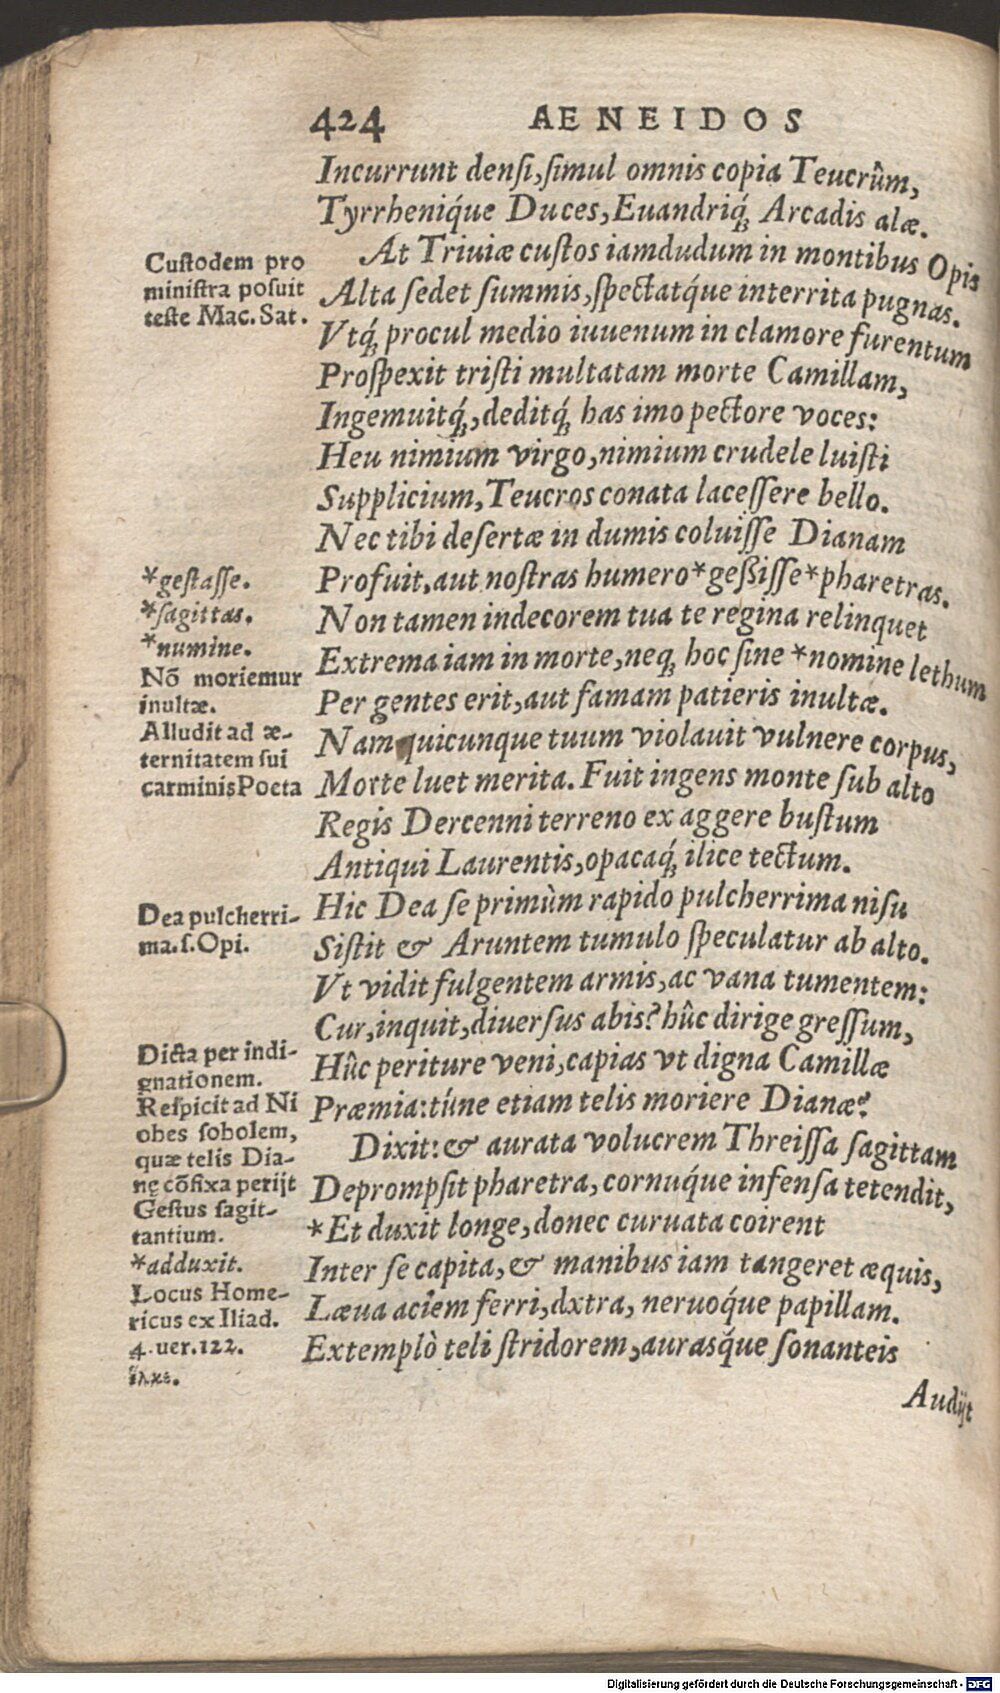 424 AENEIDOS
Incurrunt densi, simul omnis copia Teucrûm,
Tyrrheniq́ue Duces, Euandriq́; Arcadis alæ.
At Triuiæ custos iamdudum in montibus Opis
Alta sedet summis, spectatq́ue interrita pugnas.
Vtq́; procul medio iuuenum in clamore furentum
Prospexit tristi multatam morte Camillam,
Ingemuitq́;, deditq́; has imo pectore voces:
Heu nimium virgo, nimium crudele luisti
Supplicium, Teucros conata lacessere bello.
Nec tibi desertæ in dumis coluisse Dianam
Profuit, aut nostras humero *geßisse *pharetras.
Non tamen indecorem tua te regina relinquet
Extrema iam in morte, neq; hoc sine *nomine lethum
Per gentes erit, aut famam patieris inultæ.
Nam quicunque tuum violauit vulnere corpus,
Morte luet merita. Fuit ingens monte sub alto
Regis Dercenni terreno ex aggere bustum
Antiqui Laurentis, opacaq́; ilice tectum.
Hic Dea se primùm rapido pulcherrima nisu
Sistit & Aruntem tumulo speculatur ab alto.
Vt vidit fulgentem armis, ac vana tumentem:
Cur, inquit, diuersus abis? hûc dirige gressum,
Hûc periture veni, capias vt digna Camillæ
Præmia: túne etiam telis moriere Dianæ?
Dixit: & aurata volucrem Threissa sagittam
Deprompsit pharetra, cornuq́ue infensa tetendit,
*Et duxit longe, donec curuata coirent
Inter se capita, & manibus iam tangeret æquis,
Læua aciem ferri, dxtra, neruoq́ue papillam.
Extemplò teli stridorem, aurasq́ue sonanteis
Audijt
Custodem pro
ministra posuit
teste Mac. Sat.
*gestasse.
*sagittas.
*numine.
Nõ moriemur
inultæ.
Alludit ad æ-
ternitatem sui
carminis Poeta
Dea pulcherri-
ma. s. Opi.
Dicta per indi-
gnationem.
Respicit ad Ni
obes sobolem,
quæ telis Dia-
nę cõfixa perijt
Gestus sagit-
tantium.
*adduxit.
Locus Home-
ricus ex Iliad.
4. uer. 122.
Digitalisierung gefördert durch die Deutsche Forschungsgemeinschaft - DFG